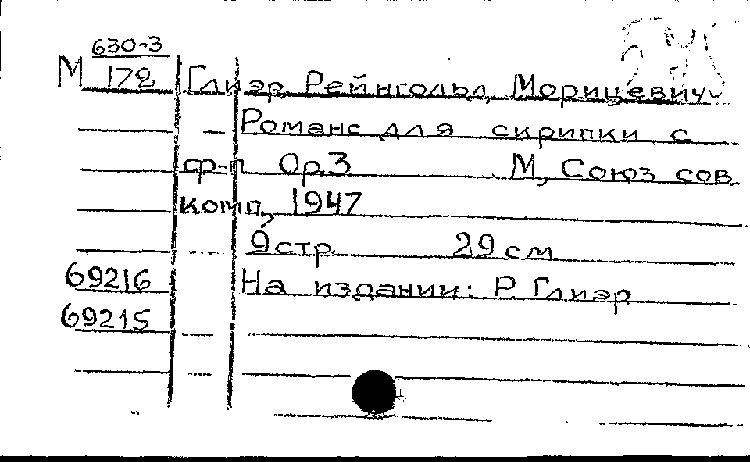 630-3
М 172 Глиэр, Рейнгольд Морицевич
Романс для скрипки с
ф-п Op.3 М, Союз сов
комп, 1947
9стр 29 см
69216 На издании: Р. Глиэр
69215